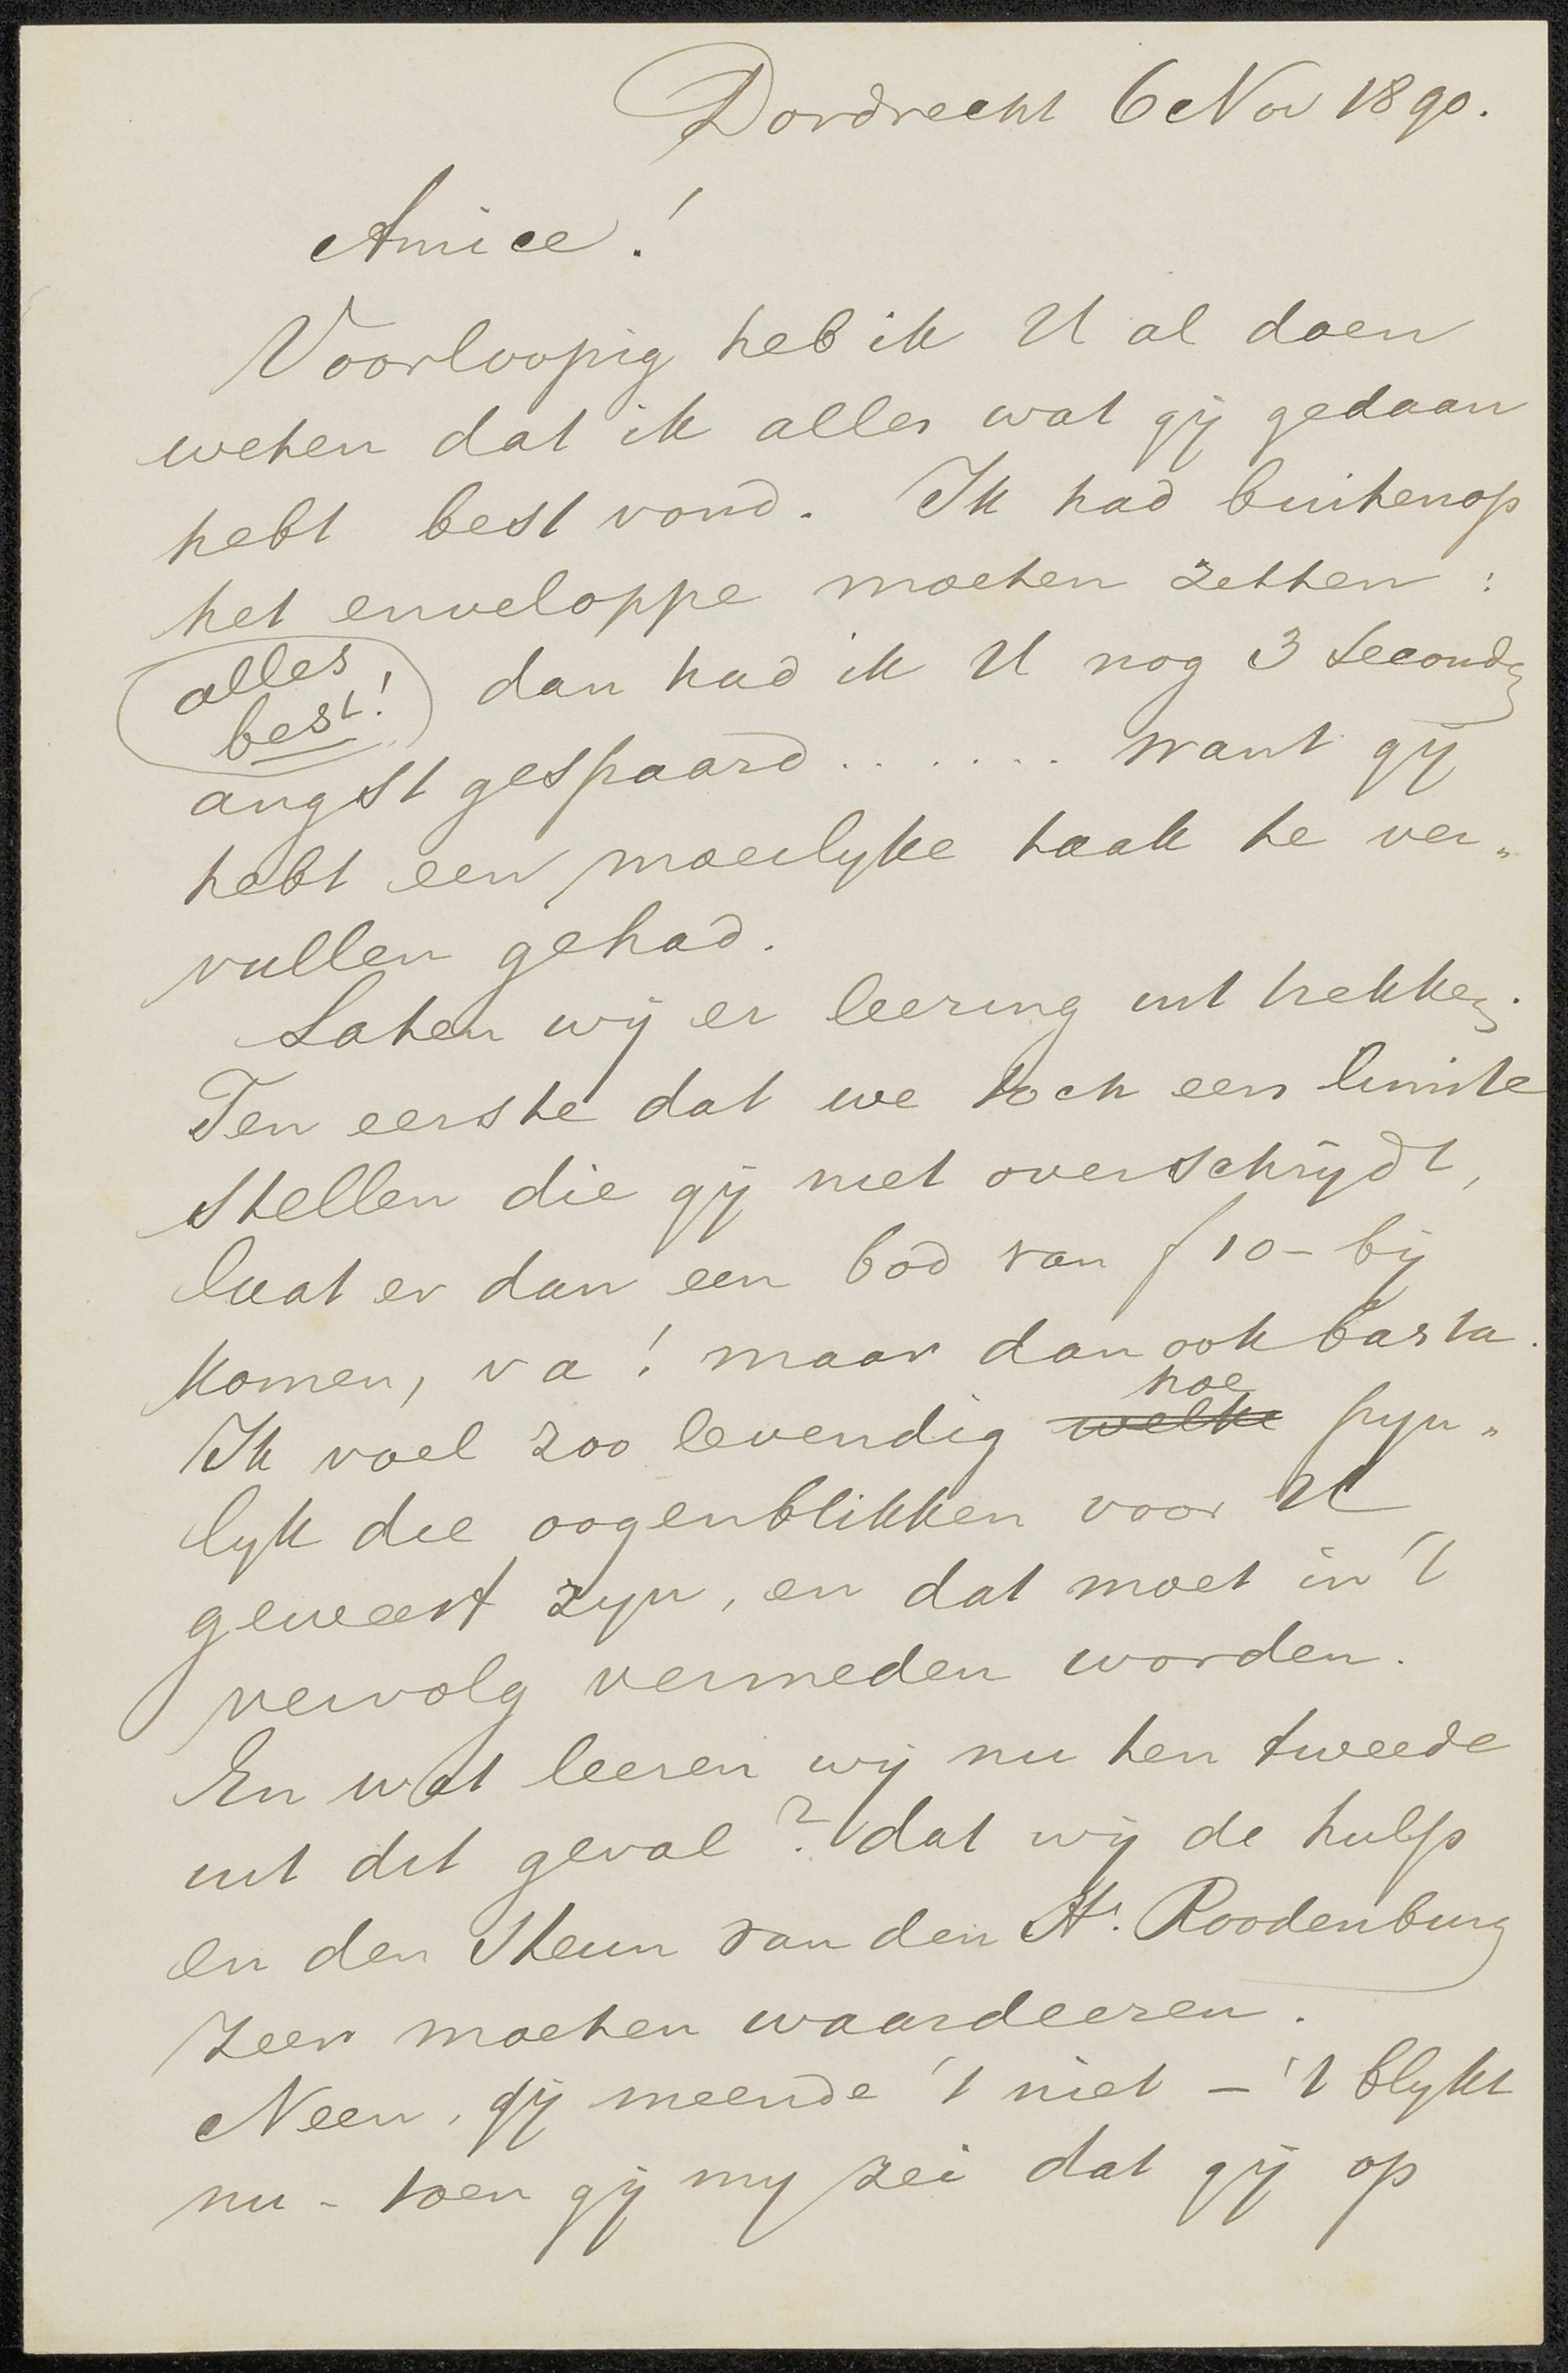 Dordrecht 6 Nov 1890.
Amice!
Voorloopig heb ik U al doen
weten dat ik alles wat gij gedaan
hebt best vond. Ik had buitenop
het enveloppe moeten zetten :
alles
best!
dan had ik U nog 3 seconden
angst gespaard ....... want gij
hebt een moeilyke taak te ver„
vullen gehad.
Laten wij er leering uit trekken.
Ten eerste dat we toch een limite
stellen die gij niet overschrijdt,
laat er dan een bod van f 10- bij
komen, va! maar dan ook basta.
Ik voel zoo levendig welke hoe pyn„
lyk die oogenblikken voor U
geweest zyn, en dat moet in 't
vervolg vermeden worden.
En wat leeren wij nu ten tweede
uit dit geval? dat wij de hulp
en den steun van den Hr. Roodenburg
zeer moeten waardeeren.
Neen, gij meende 't niet - 't blykt
nu - toen gij my zei dat gij op